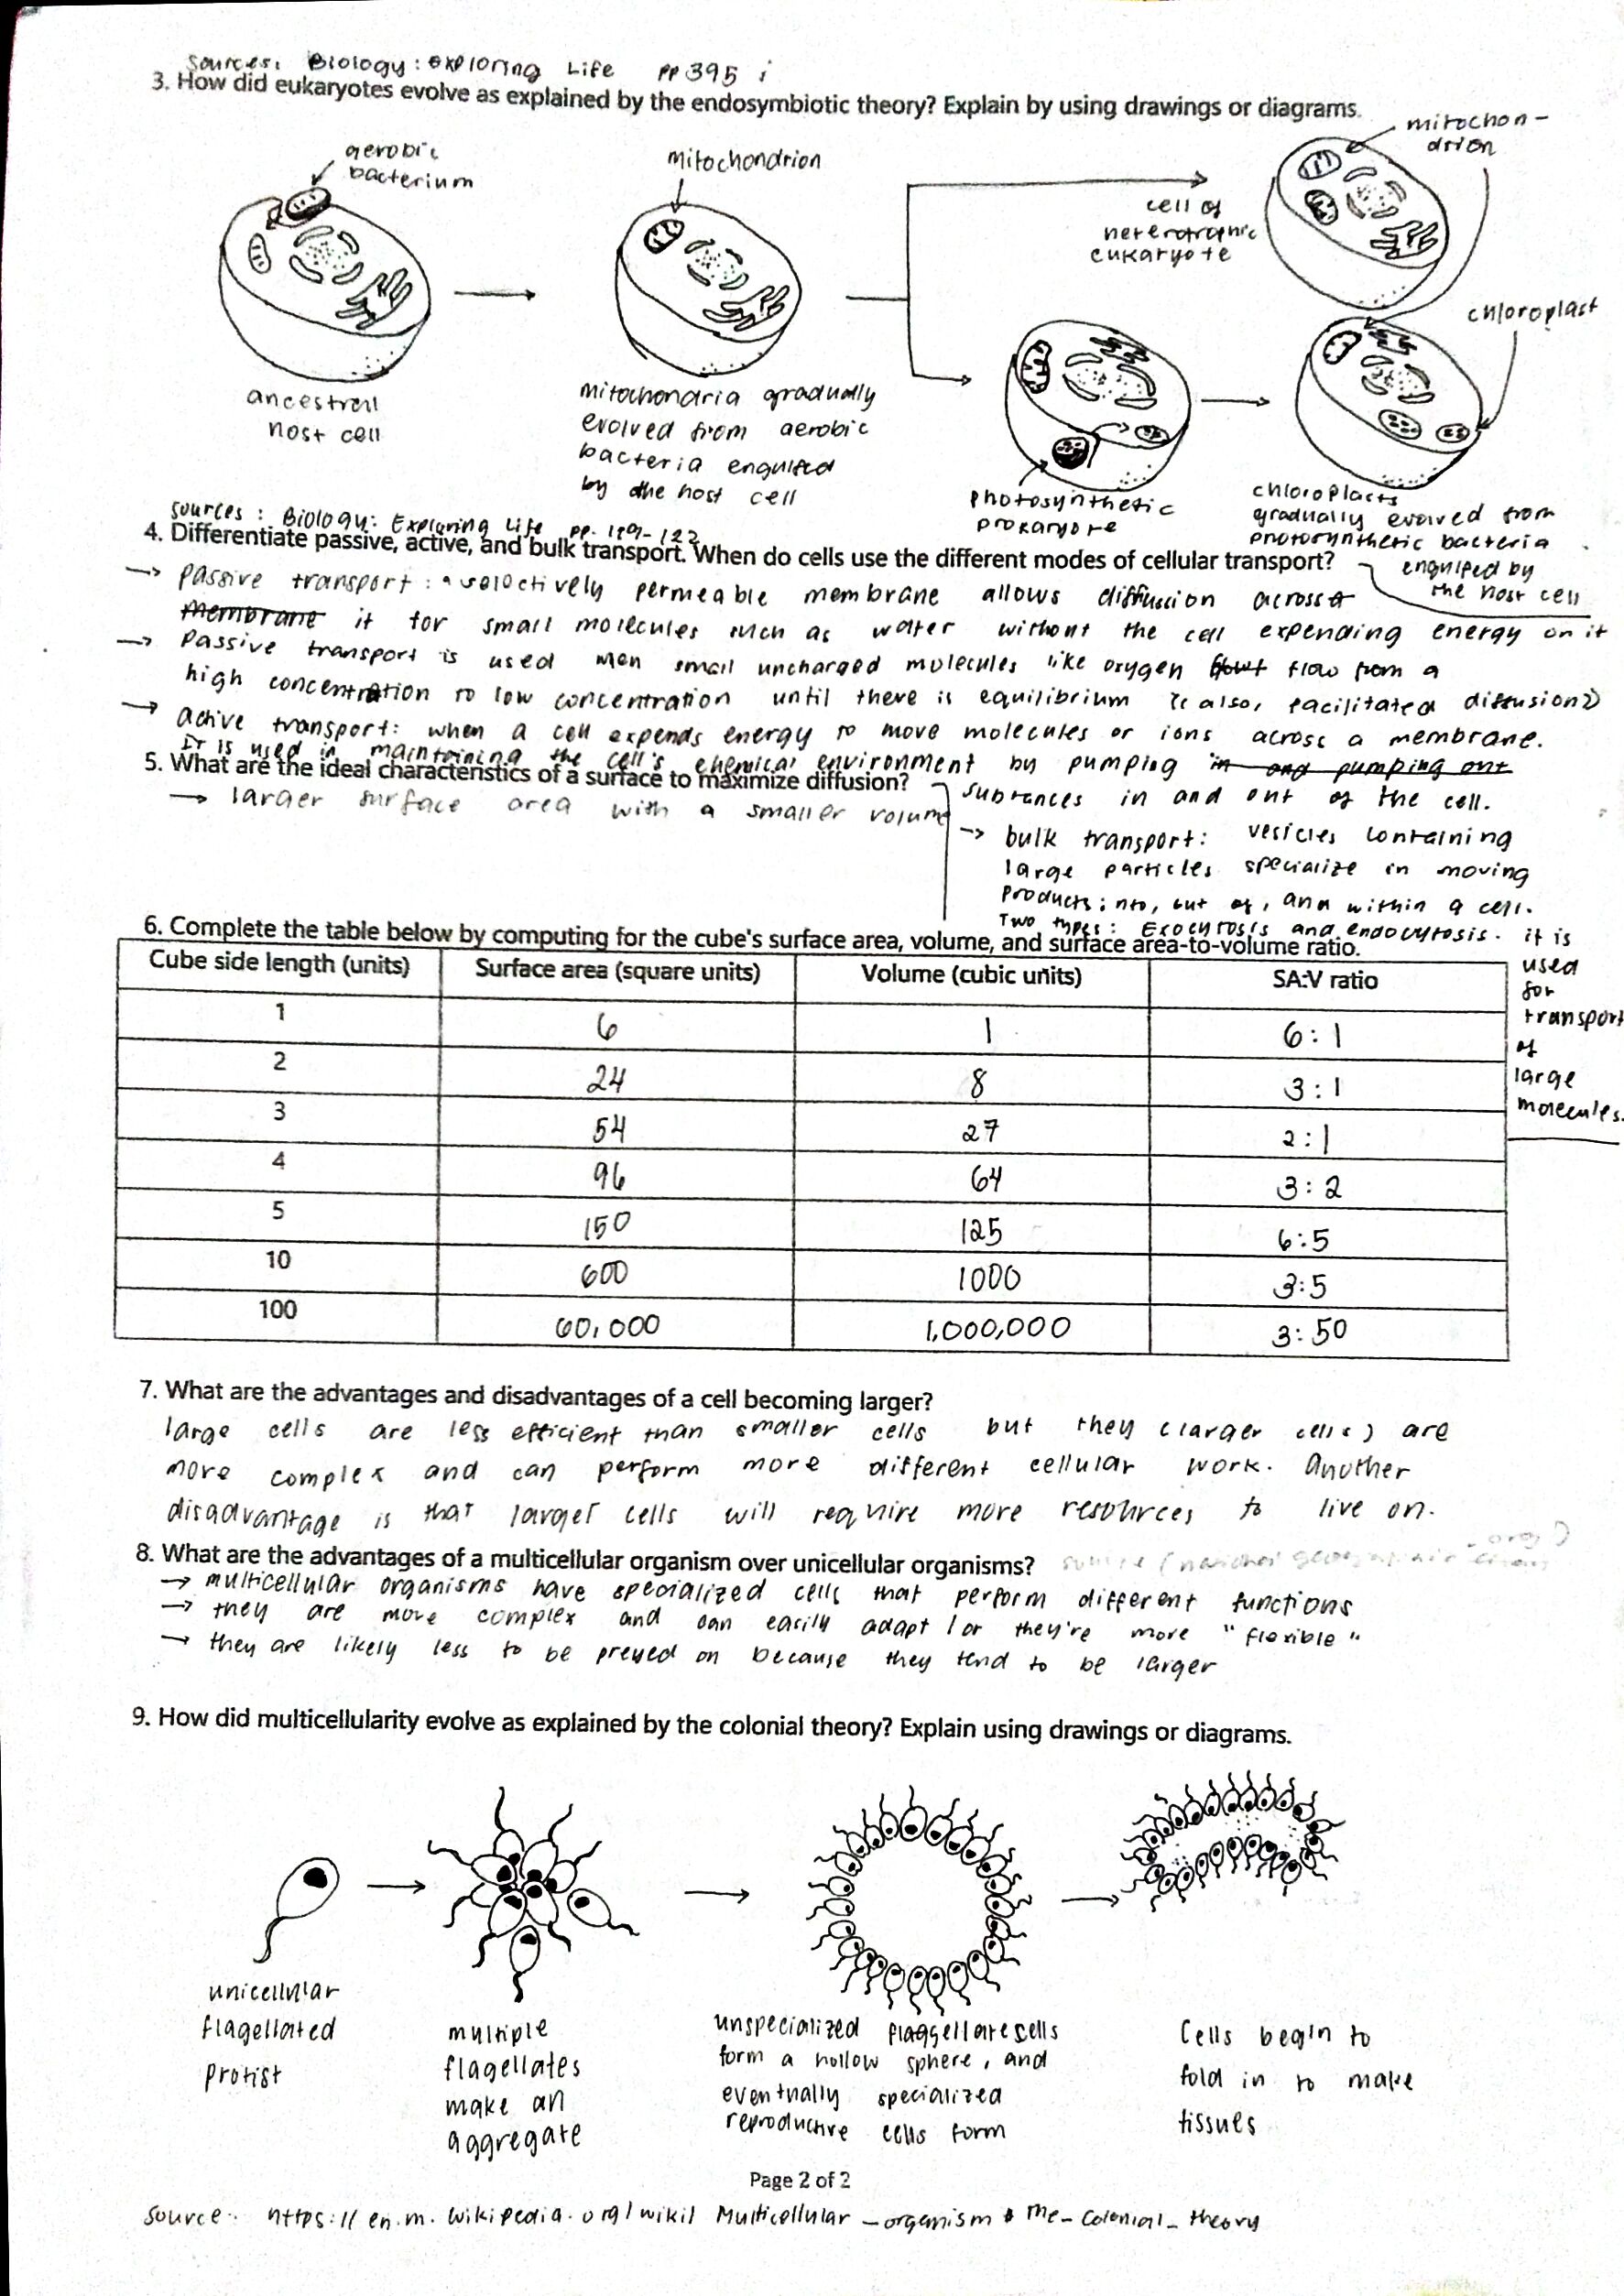 Sources: Biology: Exploring Life pp 395 ;
3. How did eukaryotes evolve as explained by the endosymbiotic theory? Explain by using drawings or diagrams.
aerobic
bacterium
mitochondrion
mitochon-
drion
cell of
heterotrophic
eukaryote
chloroplast
ancestral
host cell
mitochondria gradually
evolved from aerobic
bacteria engulfed
by the host cell
photosynthetic
prokaryote
chloroplasts
gradually evolved from
photosynthetic bacteria
engulfed by
the host cell
sources: Biology: Exploring Life pp. 119-122
4. Differentiate passive, active, and bulk transport. When do cells use the different modes of cellular transport?
→ passive transport: a selectively permeable membrane allows diffusion across
membrane it for small molecules such as water without the cell expending energy on it
→ Passive transport is used when small uncharged molecules like oxygen flow from a
high concentration to low concentration until there is equilibrium (also, facilitated diffusion)
→ active transport: when a cell expends energy to move molecules or ions across a membrane.
It is used in maintaining the cell's chemical environment by pumping in and pumping out
subtances in and out of the cell.
5. What are the ideal characteristics of a surface to maximize diffusion?
→ larger surface area with a smaller volume
→ bulk transport: vesicles containing
large particles specialize in moving
products into, out of, and within a cell.
Two types: Exocytosis and endocytosis. it is
used
for
transport
of
large
molecules.
6. Complete the table below by computing for the cube's surface area, volume, and surface area-to-volume ratio.
Cube side length (units) Surface area (square units) Volume (cubic units) SA:V ratio
1 6 1 6:1
2 24 8 3:1
3 54 27 2:1
4 96 64 3:2
5 150 125 6:5
10 600 1000 3:5
100 60,000 1,000,000 3:50
7. What are the advantages and disadvantages of a cell becoming larger?
large cells are less efficient than smaller cells but they (larger cells) are
more complex and can perform more different cellular work. Another
disadvantage is that larger cells will require more resources to live on.
8. What are the advantages of a multicellular organism over unicellular organisms?
→ multicellular organisms have specialized cells that perform different functions
→ they are more complex and can easily adapt / or they're more "flexible"
→ they are likely less to be preyed on because they tend to be larger
9. How did multicellularity evolve as explained by the colonial theory? Explain using drawings or diagrams.
unicellular
flagellated
protist
multiple
flagellates
make an
aggregate
unspecialized flaggellate cells
form a hollow sphere, and
eventually specialized
reproductive cells form
Cells begin to
fold in to make
tissues
Page 2 of 2
Source: https://en.m.wikipedia.org/wiki/Multicellular_organism # The_Colonial_theory